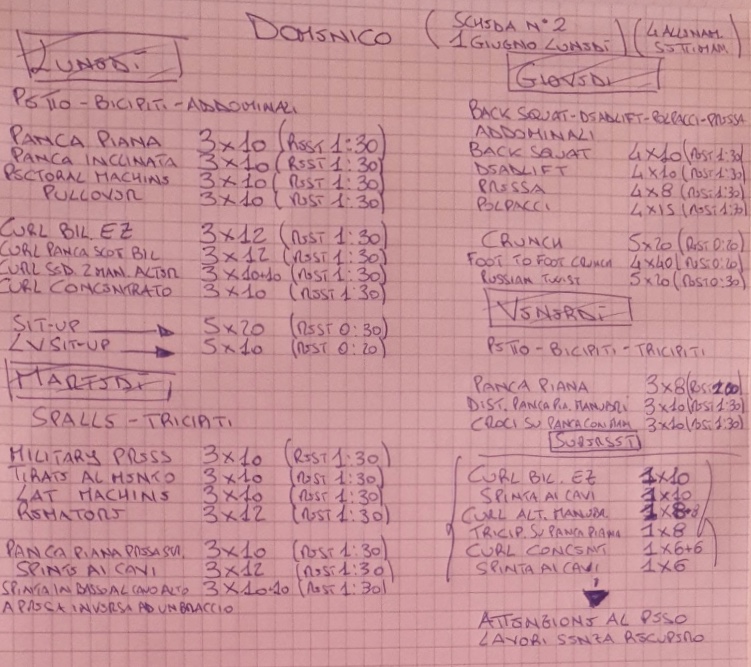 DOMENICO
(SCHEDA N°2
1 GIUGNO LUNEDÌ)
(4 ALLENAM.
SETTIMAN)
LUNEDÌ
PETTO - BICIPITI - ADDOMINALI
PANCA PIANA 3x10 (REST 1:30)
PANCA INCLINATA 3x10 (REST 1:30)
PECTORAL MACHINE 3x10 (REST 1:30)
PULLOVER 3x10 (REST 1:30)
CURL BIL. EZ 3x12 (REST 1:30)
CURL PANCA SCOT BIL 3x12 (REST 1:30)
CURL SED. 2 MAN. ALTER 3x10+10 (REST 1:30)
CURL CONCENTRATO 3x10 (REST 1:30)
SIT-UP → 5x20 (REST 0:30)
LV SIT-UP → 5x10 (REST 0:20)
MARTEDÌ
SPALLE - TRICIPITI
MILITARY PRESS 3x10 (REST 1:30)
TIRATE AL MENTO 3x10 (REST 1:30)
LAT MACHINE 3x10 (REST 1:30)
REMATORE 3x12 (REST 1:30)
PANCA PIANA PRESA SU. 3x10 (REST 1:30)
SPINTE AI CAVI 3x12 (REST 1:30)
SPINTA IN BASSO AL CAVO ALTO 3x10+10 (REST 1:30)
A PRESA INVERSA AD UN BRACCIO
GIOVEDÌ
BACK SQUAT - DEADLIFT - POLPACCI - PRESSA
ADDOMINALI
BACK SQUAT 4x10 (REST 1:30)
DEADLIFT 4x10 (REST 1:30)
PRESSA 4x8 (REST 1:30)
POLPACCI 4x15 (REST 1:30)
CRUNCH 5x20 (REST 0:20)
FOOT TO FOOT CRUNCH 4x40 (REST 0:20)
RUSSIAN TWIST 5x20 (REST 0:30)
VENERDÌ
PETTO - BICIPITI - TRICIPITI
PANCA PIANA 3x8 (REST
DIST. PANCA PIA. MANUBRI 3x10 (REST 1:30)
CROCI SU PANCA CON MAN 3x10 (REST 1:30)
SUPERSET
CURL BIL. EZ 1x10
SPINTA AI CAVI 1x10
CURL ALT. MANUB. 1x8+8
TRICIP. SU PANCA PIANA 1x8
CURL CONCENT 1x6+6
SPINTA AI CAVI 1x6
ATTENZIONE AL PESO
LAVORI SENZA RECUPERO